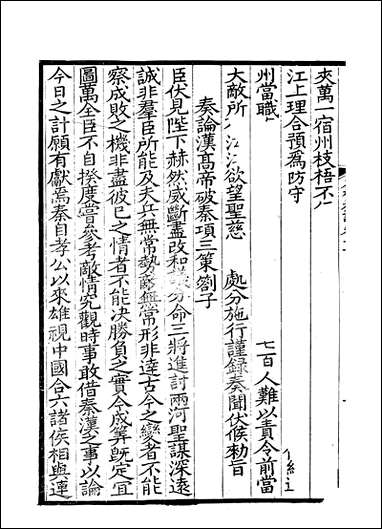 夾萬一宿州枝梧不
江上理合預爲防守
州當職 七百人難以責令前當
大敵所 欲望聖慈 處分施行謹録奏聞伏候勅旨
奏論漢髙帝破秦項三策劄子
臣伏見陛下赫然威斷盡改和 分命三將進討兩河聖謀深遠
誠非羣臣所能及夫兵無常勢敵無常形非達古今之變者不能
察成敗之機非盡彼已之情者不能決勝負之實今成筭旣定宜
圖萬全臣不自揆度嘗參考敵情究觀時事敢借秦漢之事以論
今日之計願有獻焉秦自孝公以來雄視中國合六諸侯相與連